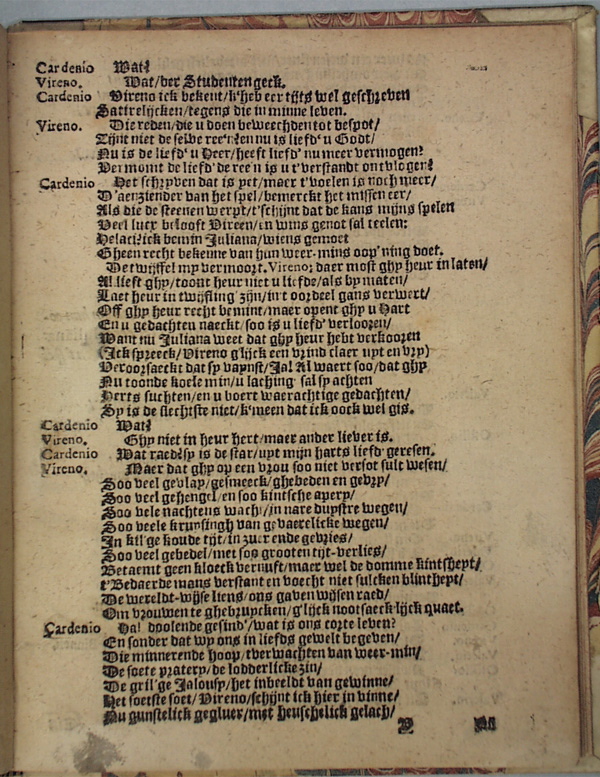 Cardenio Wat?
Vireno. Wat/der Studenten geck.
Cardenio Vireno ick bekent/k'heb eertijts wel geschreven
Satirelijcken/tegens die in minne leven.
Vireno. Die reden/die u doen beweechden tot bespot/
Zijnt niet de selve ree'nen nu is liefd' u Godt/
Nu is de liefd' u Heer/heeft liefd' nu meer vermogen?
Vermomt de liefd' de ree'n is u t'verstandt ontvlogen?
Cardenio Het schryven dat is yet/maer t'voelen is noch meer/
D'aenziender van het spel/bemerckt het missen eer/
Als die de steenen werpt/t'schijnt dat de kans mijns spelen
Veel lucx belooft Vireen/en wins genot sal teelen:
Helaci!ick bemin Juliana/wiens gemoet
Gheen recht bekenne van hun weer-mins oop'ning doet.
Het twijffel my vermoort. Vireno: daer most ghy heur in laten/
Al lieft ghy/toont heur niet u liefde/als by maten/
Laet heur in twijfling zijn/in't oordeel gans verwert/
Off ghy heur recht bemint/maer opent ghy u Hart
En u gedachten naeckt/soo is u liefd' verlooren/
Want nu Juliana weet dat ghy heur hebt verkooren
(Ick spreeck/Vireno g'lijck een vrind claer uyt en vry)
Veroorsaeckt dat sy vaynst/Ja! Al waert soo/dat ghy
Nu toonde koele min/u laching' sal sy achten
Herts suchten/en u boert waerachtige gedachten/
Sy is de slechtste niet/k'meen dat ick oock wel gis.
Cardenio Wat?
Vireno. Ghy niet in heur hert/maer ander liever is.
Cardenio Wat raedt!sy is de star/uyt mijn harts liefd' geresen.
Vireno. Maer dat ghy op een vrou soo niet versot sult wesen/
Soo veel gevlay/gesmeeck/ghebeden en gevry/
Soo veel gehengel/en soo kintsche apery/
Soo vele nachtens wach:/in nare duystre wegen/
Soo veele kruysingh van gevaerelicke wegen/
In kil'ge koude tijt/in zuer ende gevries/
Soo veel gebedel/met soo grooten tijt-verlies/
Betaemt geen kloeck vernuft/maer wel de domme kintsheyt/
t'Bedaerde mans verstant en voecht niet sulcken blintheyt/
De wereldt-wijse liens/ons gaven wijsen raed/
Om vrouwen te ghebruycken/g'lijck nootsaeck-lijck quaet.
Cardenio Ha! doolende gesind'/wat is ons corte leven?
En sonder dat wy ons in liefds gewelt begeven/
Die minnerende hoop/tverwachten van weer-min/
De soete pratery/de lodderlicke zin/
De gril'ge Jalousy/het inbeeldt van gewinne/
Het soetste soet/Vireno/schijnt ick hier in vinne/
Nu gunstelick gegluer/met heuschelick gelach/